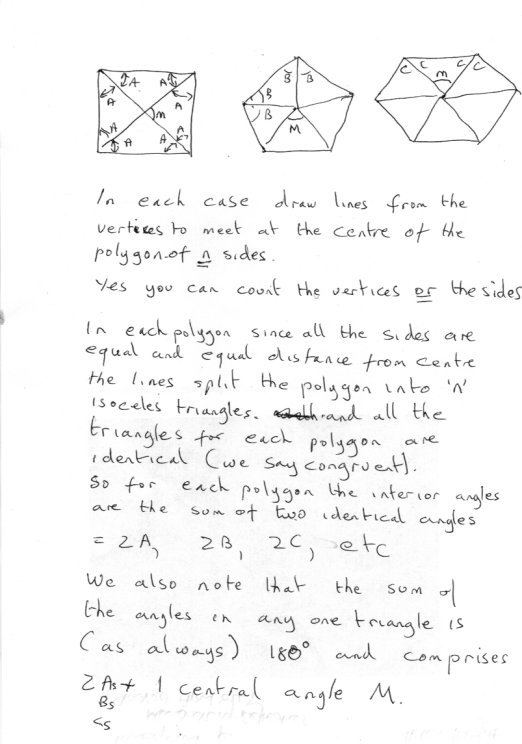 A A
A A m
A A
A A
B B
B
B M
C C C C
m
In each case draw lines from the
vertices to meet at the centre of the
polygon of n sides.
Yes you can count the vertices or the sides
In each polygon since all the sides are
equal and equal distance from centre
the lines split the polygon into 'n'
isoceles triangles. and all the
triangles for each polygon are
identical (we say congruent).
So for each polygon the interior angles
are the sum of two identical angles
= 2A, 2B, 2C, etc
We also note that the sum of
the angles in any one triangle is
(as always) 180° and comprises
2 As + 1 central angle M.
Bs
Cs